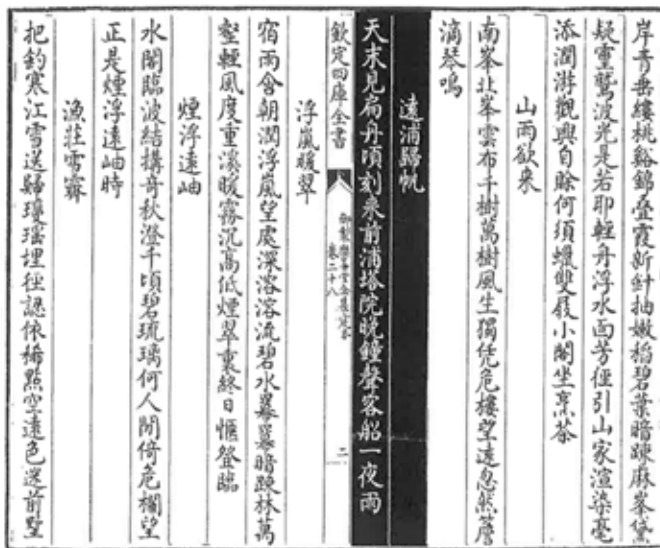 岸青垂縷桃谿錦叠霞新針抽嫩稻碧葉暗踈麻峯黛
疑靈鷲波光是若耶輕舟浮水面芳徑引山家渲染毫
添潤游觀興自賖何須蠟雙屐小閣坐烹茶
山雨欲来
南峯北峯雲布千樹萬樹風生獨凭危樓望遠忽然簷
滴琴鳴
遠浦歸帆
天末見扁舟頃刻来前浦塔院晚鐘聲客船一夜雨
欽定四庫全書
御製樂善堂全集定本
卷二十八
二
浮嵐暖翠
宿雨含朝潤浮嵐望處深溶溶流碧水羃羃暗踈林萬
壑輕風度重溪暖霧沉高低煙翠裏終日愜登臨
煙浮遠岫
水閣臨波結搆竒秋澄千頃碧琉璃何人閒倚危欄望
正是煙浮遠岫時
漁莊雪霽
把釣寒江雪送歸瓊瑶埋徑認依稀點空遠色迷前墅